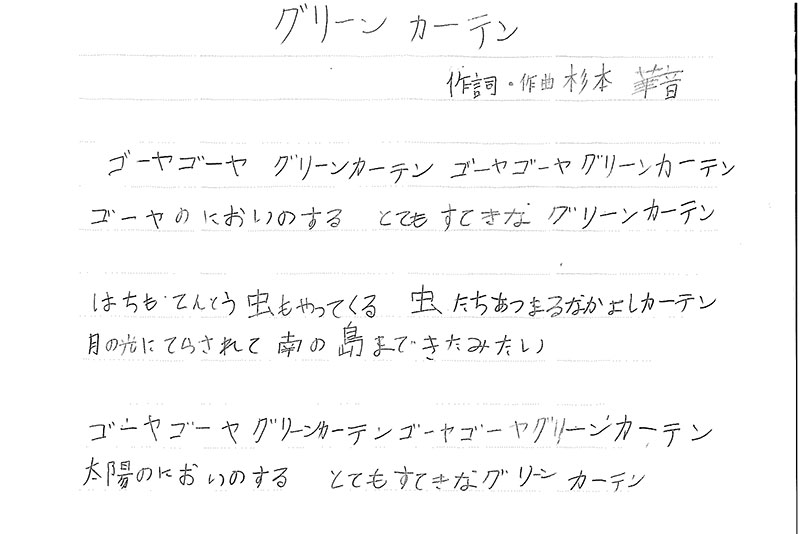 グリーン カーテン
作詞・作曲 杉本 華音
ゴーヤゴーヤ グリーンカーテン ゴーヤゴーヤグリーンカーテン
ゴーヤのにおいのする とてもすてきな グリーンカーテン
はちも・てんとう虫もやってくる 虫たちあつまるなかよしカーテン
月の光にてらされて 南の島まできたみたい
ゴーヤゴーヤグリーンカーテンゴーヤゴーヤグリーンカーテン
太陽のにおいのする とてもすてきなグリーン カーテン